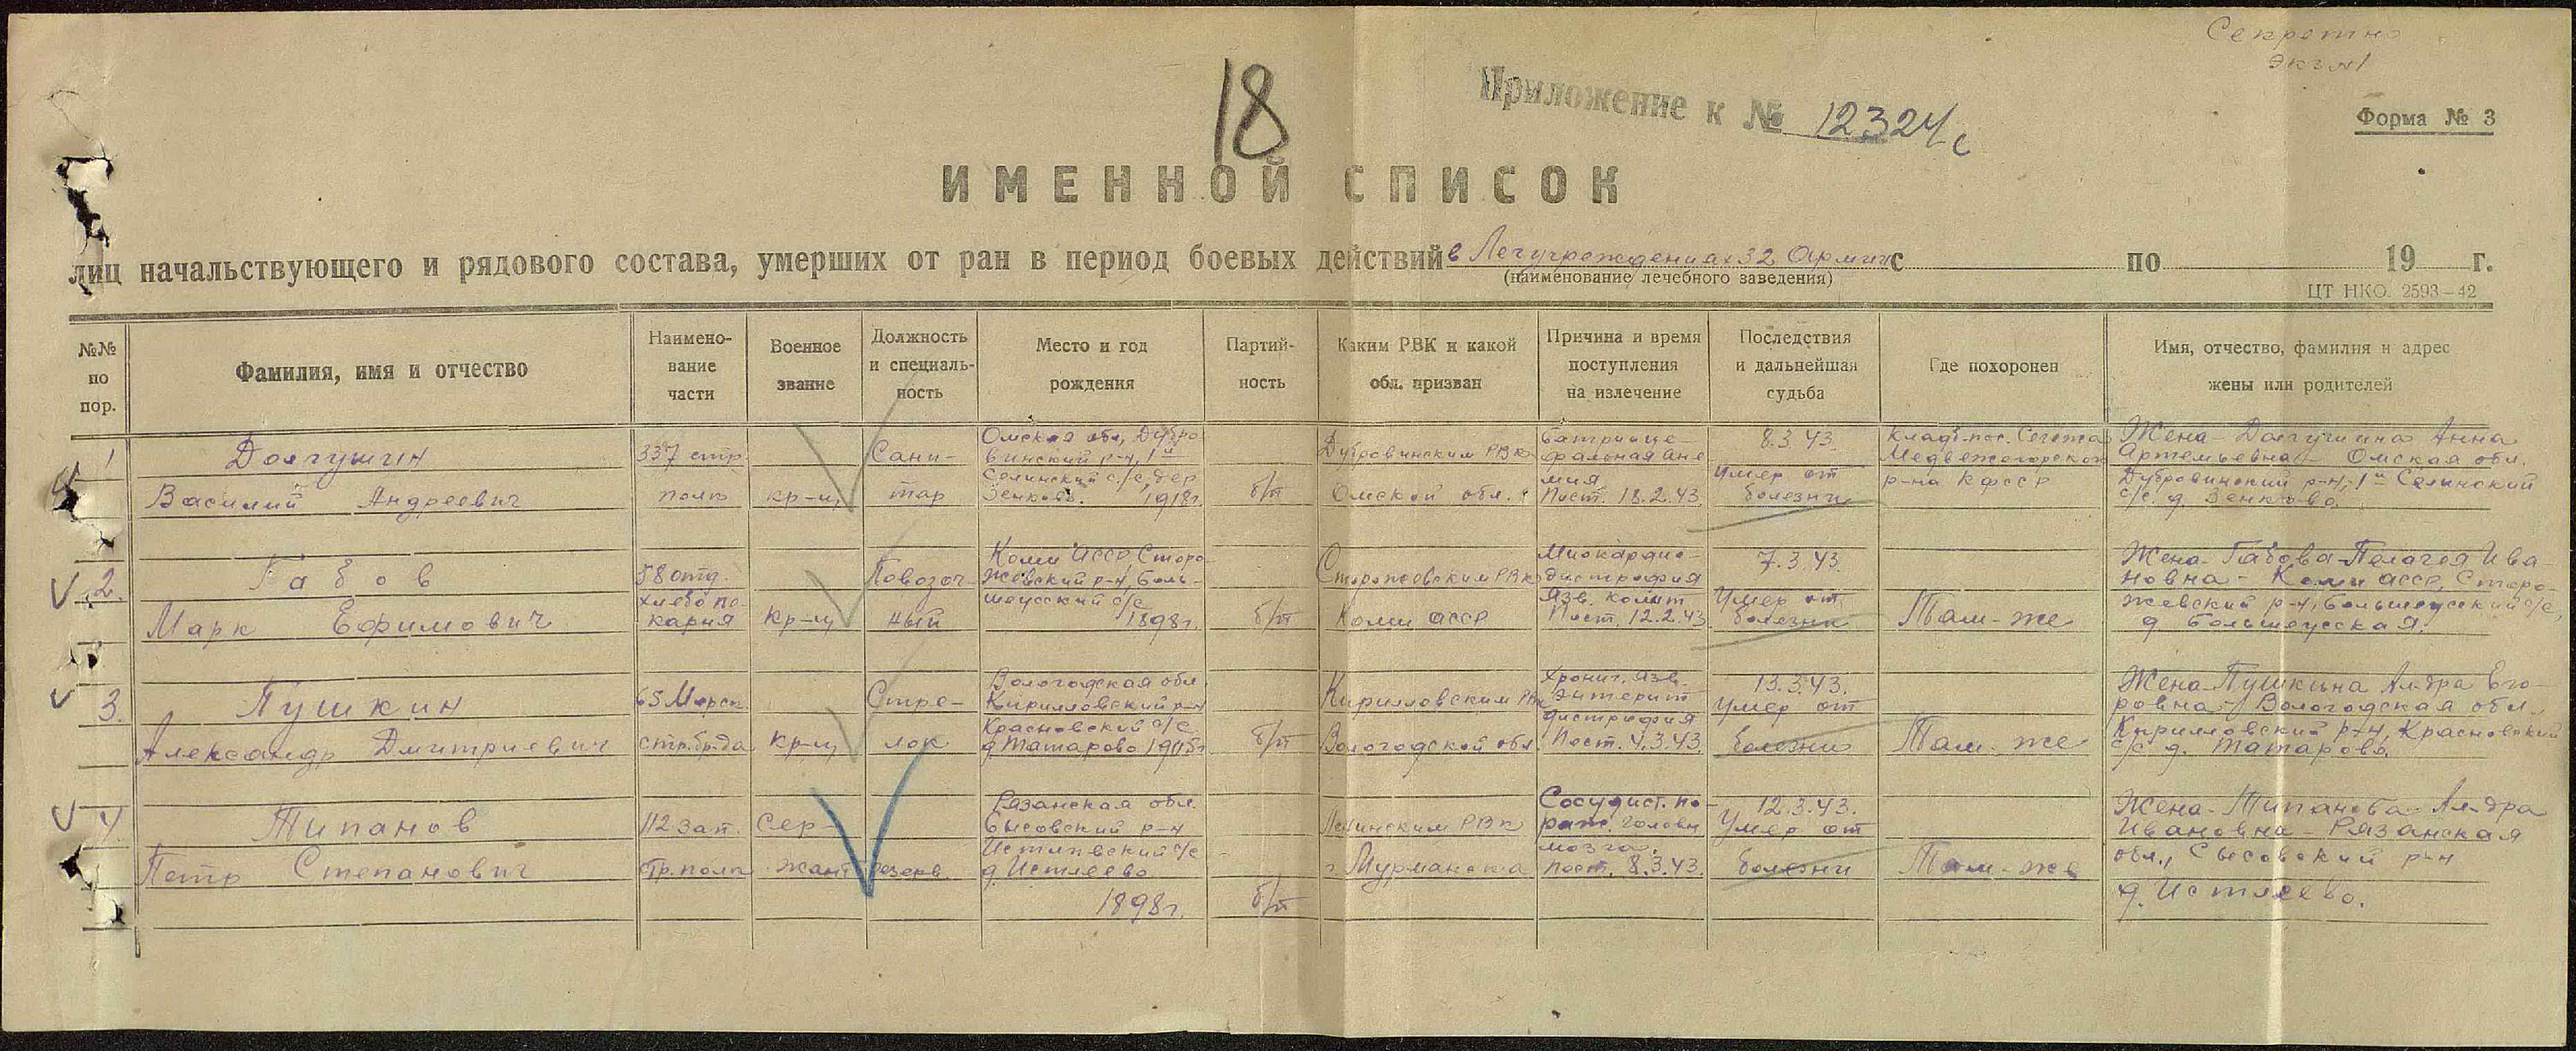 Секретно
Экз №1
18
Приложение к № 12324/с
Форма № 3
ИМЕННОЙ СПИСОК
лиц начальствующего и рядового состава, умерших от ран в период боевых действий в Лечучреждениях 32 Армии с по 19 г.
(наименование лечебного заведения)
ЦТ НКО. 2593—42
№№ по пор.
Фамилия, имя и отчество
Наимено-
вание
части
Военное
звание
Должность
и специаль-
ность
Место и год
рождения
Партий-
ность
Каким РВК и какой
обл. призван
Причина и время
поступления
на излечение
Последствия
и дальнейшая
судьба
Где похоронен
Имя, отчество, фамилия и адрес
жены или родителей
1
Долгушин
Василий Андреевич
337 стр.
полк
кр-ц
Сани-
тар
Омская обл, Дубро
винский р-н, 1й
Селинский с/с, дер
Зенково. 1918г.
б/п
Дубровинским РВК
Омской обл.
фральная ане
мия
Пост. 18.2.43
8.3.43.
Умер от
болезни
Кладб. пос. Сегежа
Медвежегорского
р-на КФССР
Жена- Долгушина Анна
Артемьевна- Омская обл.
Дубровинский р-н, 1й Селинский
с/с. д. Зенково.
2.
Габов
Марк Ефимович
58 отд.
хлебопе-
карня
кр-ц
Повозоч-
ный
Коми АССР, Сторо
жевский р-н, Боль-
шеусский с/с
1898г.
б/п
Сторожевским РВК
Коми АССР
Миокардио-
дистрофия
Язв. колит
Пост. 12.2.43
7.3.43.
Умер от
болезни
Там-же
Жена- Габова Пелагея Ива
новна- Коми АССР, Сторо-
жевский р-н, Большеусский с/с,
д. Большеусская.
3.
Пушкин
Александр Дмитриевич
65 Морск.
стр. бр-да
кр-ц
Стре-
лок
Вологодская обл.
Кирилловский р-н
Красновский с/с
д. Татарово 1905г
б/п
Кирилловским РВК
Вологодской обл.
Хронич. язв.
энтерит
дистрофия
Пост. 4.3.43.
13.3.43.
Умер от
болезни
Там-же
Жена- Пушкина Ал-дра Его
ровна- Вологодская обл.
Кирилловский р-н, Красновский
с/с д. Татарово.
4
Типанов
Петр Степанович
112 зап.
стр. полк
Сер-
жант
резерв
Рязанская обл.
Сысовский р-н
с/с
д. Истлеево
1898г.
б/п
Ленинским РВК
г. Мурманска
Сосудист. по-
раж. головн
мозга.
Пост. 8.3.43.
12.3.43.
Умер от
болезни
Там-же
Жена- Типанова Ал-дра
Ивановна- Рязанская
обл., Сысовский р-н
д. Истлеево.